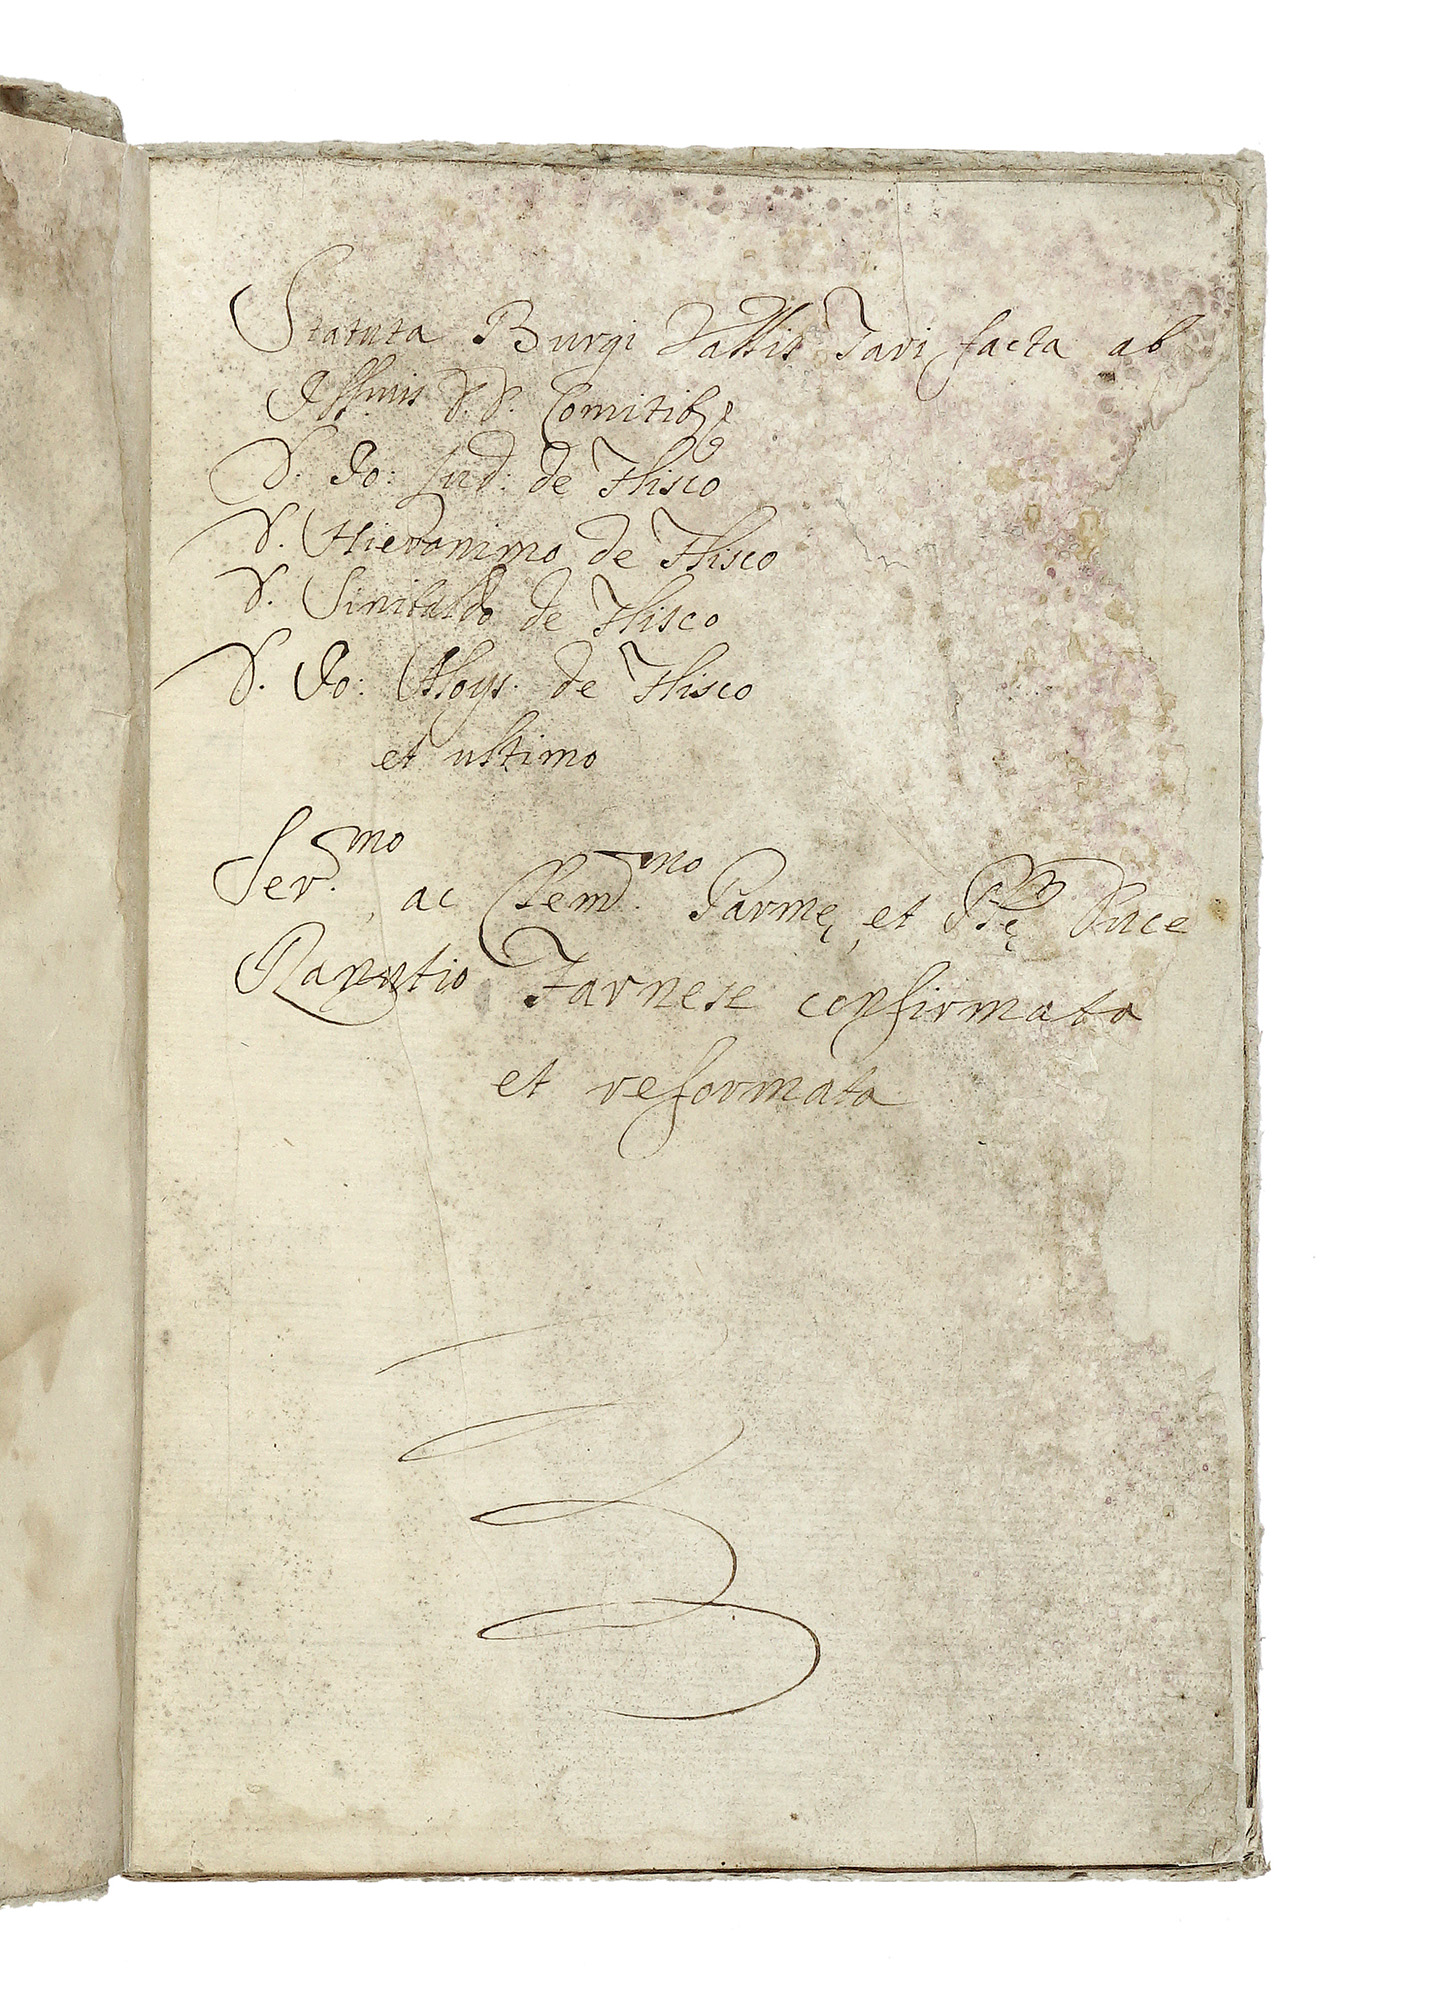 Statuta Burgi Vallis Tari facta ab
Ill.mis D. D. Comitibq
D. Io: Lud: de Flisco
D. Hieronimo de Flisco
D. Sinibaldo de Flisco
D. Io: Aloys. de Flisco
et ultimo
Ser.mo, ac Clem.mo Parmę, et Pl.ę Duce
Ranutio Farnese confirmata
et reformata